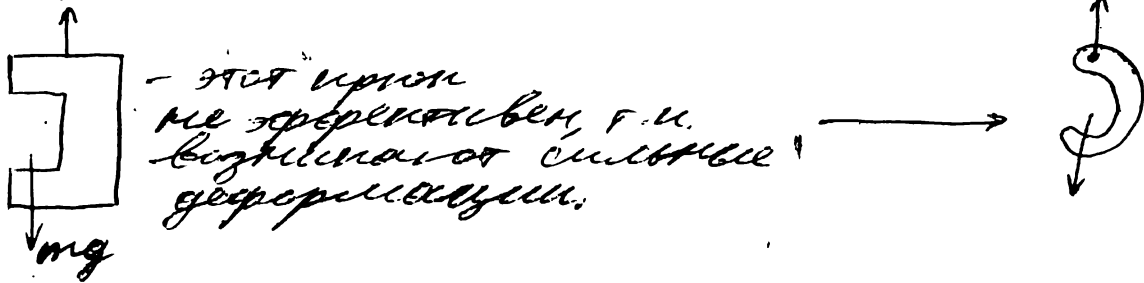 - этот крюк
не эффективен, т.к.
возникают сильные
деформации.
mg